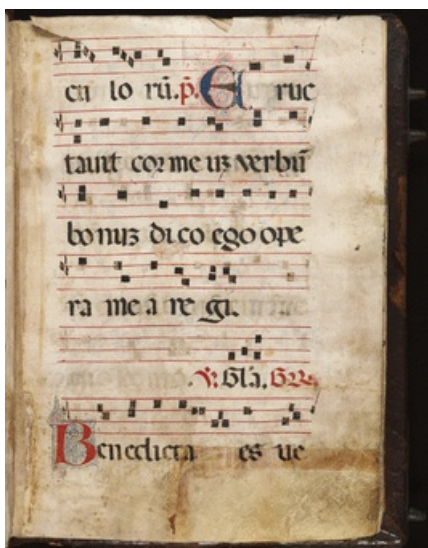 cu lo rū. p̄. E ruc
tauit cor me uꝫ verbū
bonuꝫ dico ego ope
ra mea re gi.
.℣. Gl̄a. Gr̄.
Benedicta es ue